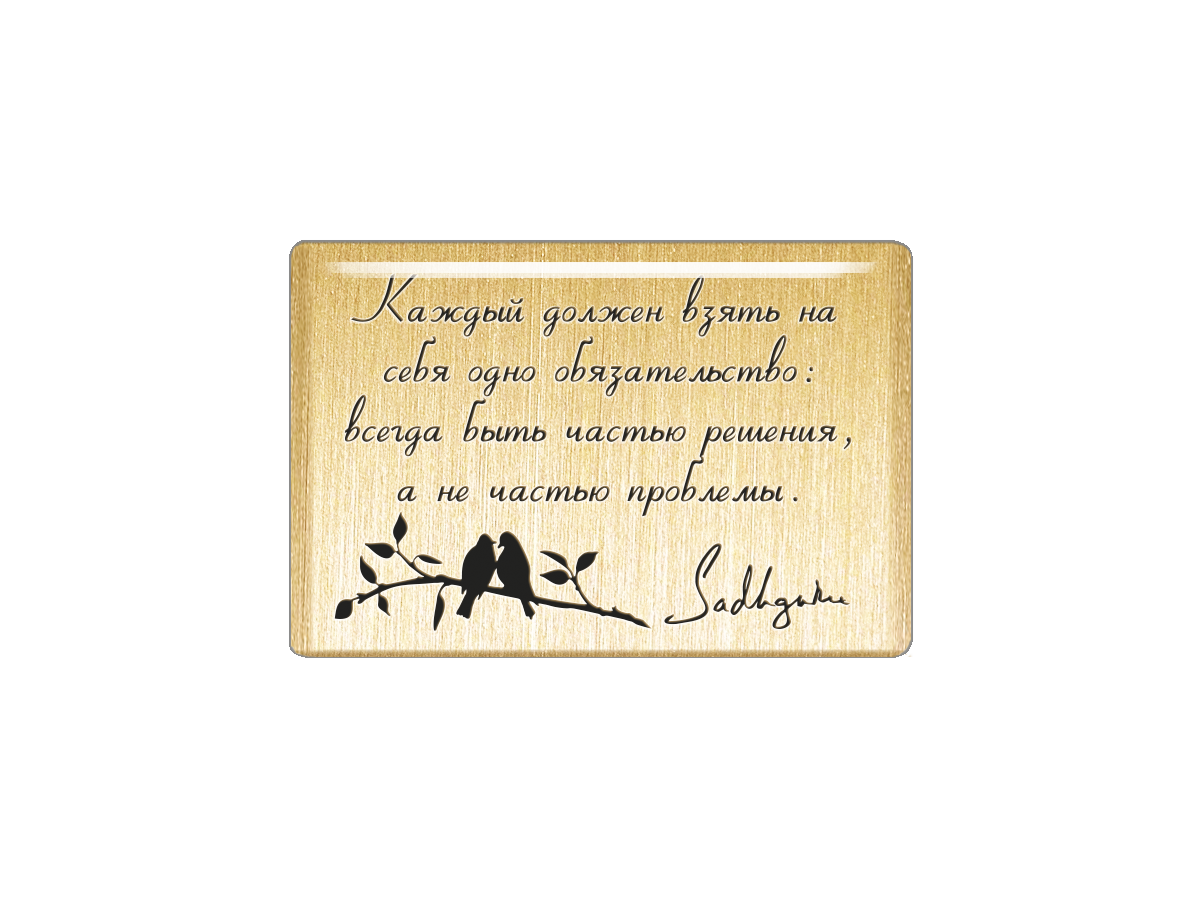 Каждый должен взять на
себя одно обязательство:
всегда быть частью решения,
а не частью проблемы.
Sadhguru